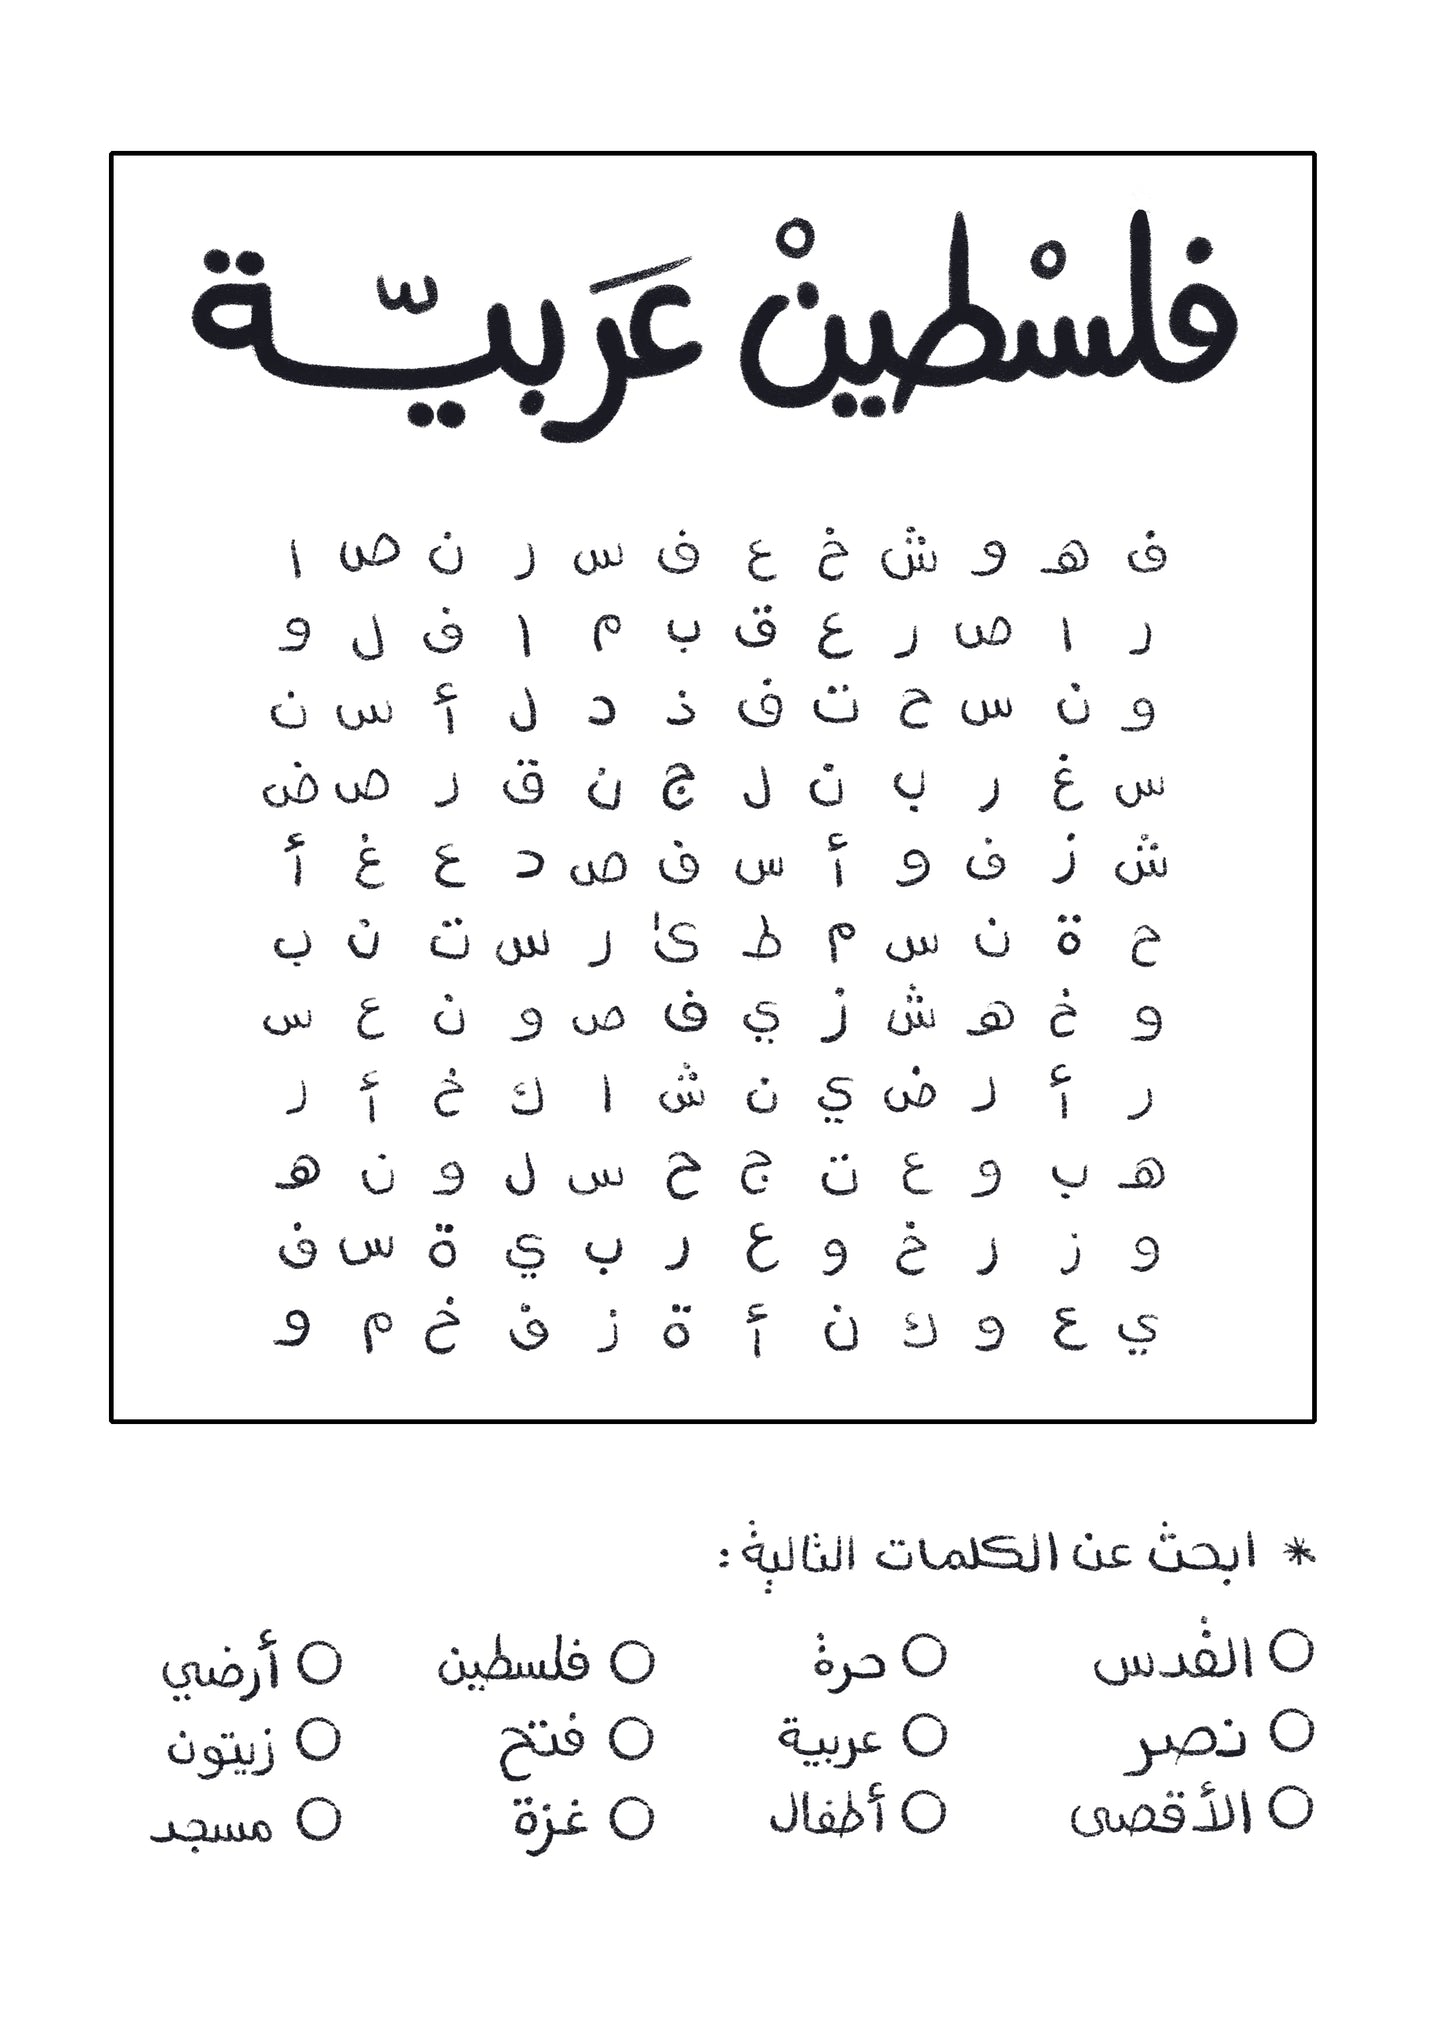 فلسْطينْ عَربيّـة
ف هـ و ش خ ع ف س ر ن ص ا
ر ا ص ر ع ق ب م ا ف ل و
و ن س ح ت ف ذ د ل أ س ن
س غ ر ب ن ل ج ن ق ر ص ض
ش ز ف و أ س ف ص د ع غ أ
ح ة ن س م ط ىٰ ر س ت ن ب
و خ هـ ش ز ي ف ص و ن ع س
ر أ ر ض ي ن ش ا ك خ أ ر
هـ ب و ع ت ج ح س ل و ن هـ
و ز ر خ و ع ر ب ي ة س ف
ي ع و ك ن أ ة ز ف خ م و
* ابحث عن الكلمات التالية :
القدس حرة فلسطين أرضي
نصر عربية فتح زيتون
الأقصى أطفال غزة مسجد